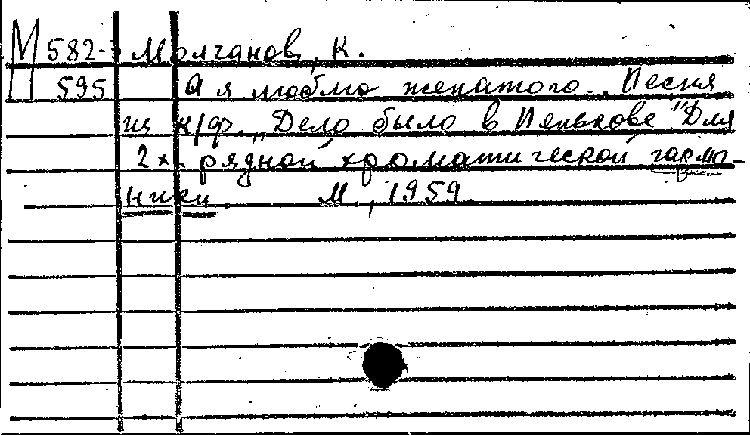 М 582-3 Молчанов, К.
595 А я люблю женатого. Песня
из к/ф. „Дело было в Пенькове" Для
2х рядной хроматической гармо-
ники. М., 1959.